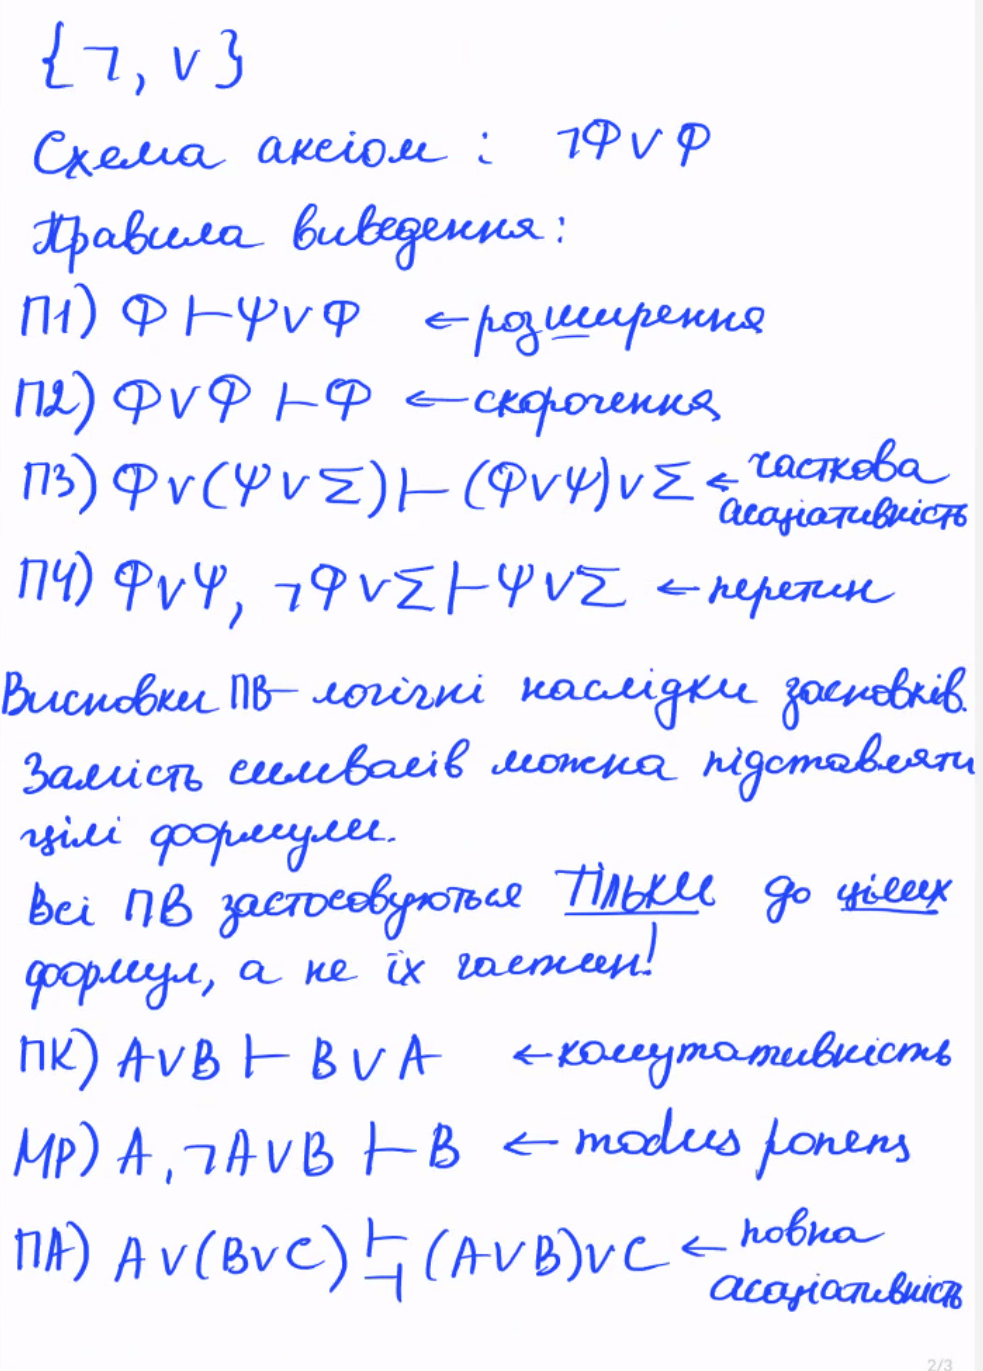 {¬, ∨}
Схема аксіом : ¬Φ∨Φ
Правила виведення:
П1) Φ ⊢ Ψ∨Φ ← розширення
П2) Φ∨Φ ⊢ Φ ← скорочення
П3) Φ∨(Ψ∨Σ) ⊢ (Φ∨Ψ)∨Σ ← часткова
асоціативність
П4) Φ∨Ψ, ¬Φ∨Σ ⊢ Ψ∨Σ ← перетин
Висновки ПВ – логічні наслідки засновків.
Замість символів можна підставляти
цілі формули.
Всі ПВ застосовуються ТІЛЬКИ до цілих
формул, а не їх частин!
ПК) A∨B ⊢ B∨A ← комутативність
MP) A, ¬A∨B ⊢ B ← modus ponens
ПА) A∨(B∨C) ⊢⊣ (A∨B)∨C ← повна
асоціативність
2/3